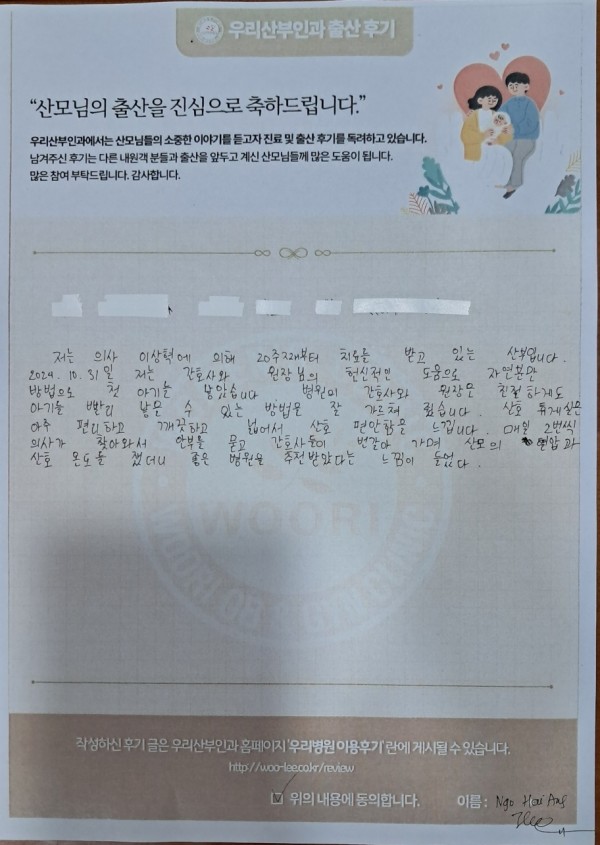 우리산부인과 출산 후기
“산모님의 출산을 진심으로 축하드립니다.”
우리산부인과에서는 산모님들의 소중한 이야기를 듣고자 진료 및 출산 후기를 독려하고 있습니다.
남겨주신 후기는 다른 내원객 분들과 출산을 앞두고 계신 산모님들께 많은 도움이 됩니다.
많은 참여 부탁드립니다. 감사합니다.
저는 의사 이상혁에 의해 20주째부터 치료를 받고 있는 산부입니다.
2024. 10. 31 일 저는 간호사와 원장님의 헌신적인 도움으로 자연분만
방법으로 첫 아기를 낳았습니다 병원의 간호사와 원장은 친절하게도
아기를 빨리 낳을 수 있는 방법을 잘 가르쳐 줬습니다. 산호 휴게실은
아주 편리하고 깨끗하고 넓어서 산호 편안함을 느낍니다. 매일 2번씩
의사가 찾아와서 안부를 묻고 간호사들이 번갈아 가며 산모의 혈압과
산호 온도를 쟀더니 좋은 병원을 추천받았다는 느낌이 들었다.
WOORI
작성하신 후기 글은 우리산부인과 홈페이지 '우리병원 이용후기' 란에 게시될 수 있습니다.
http://woo-lee.co.kr/review
위의 내용에 동의합니다. 이름 : Ngo Hoai